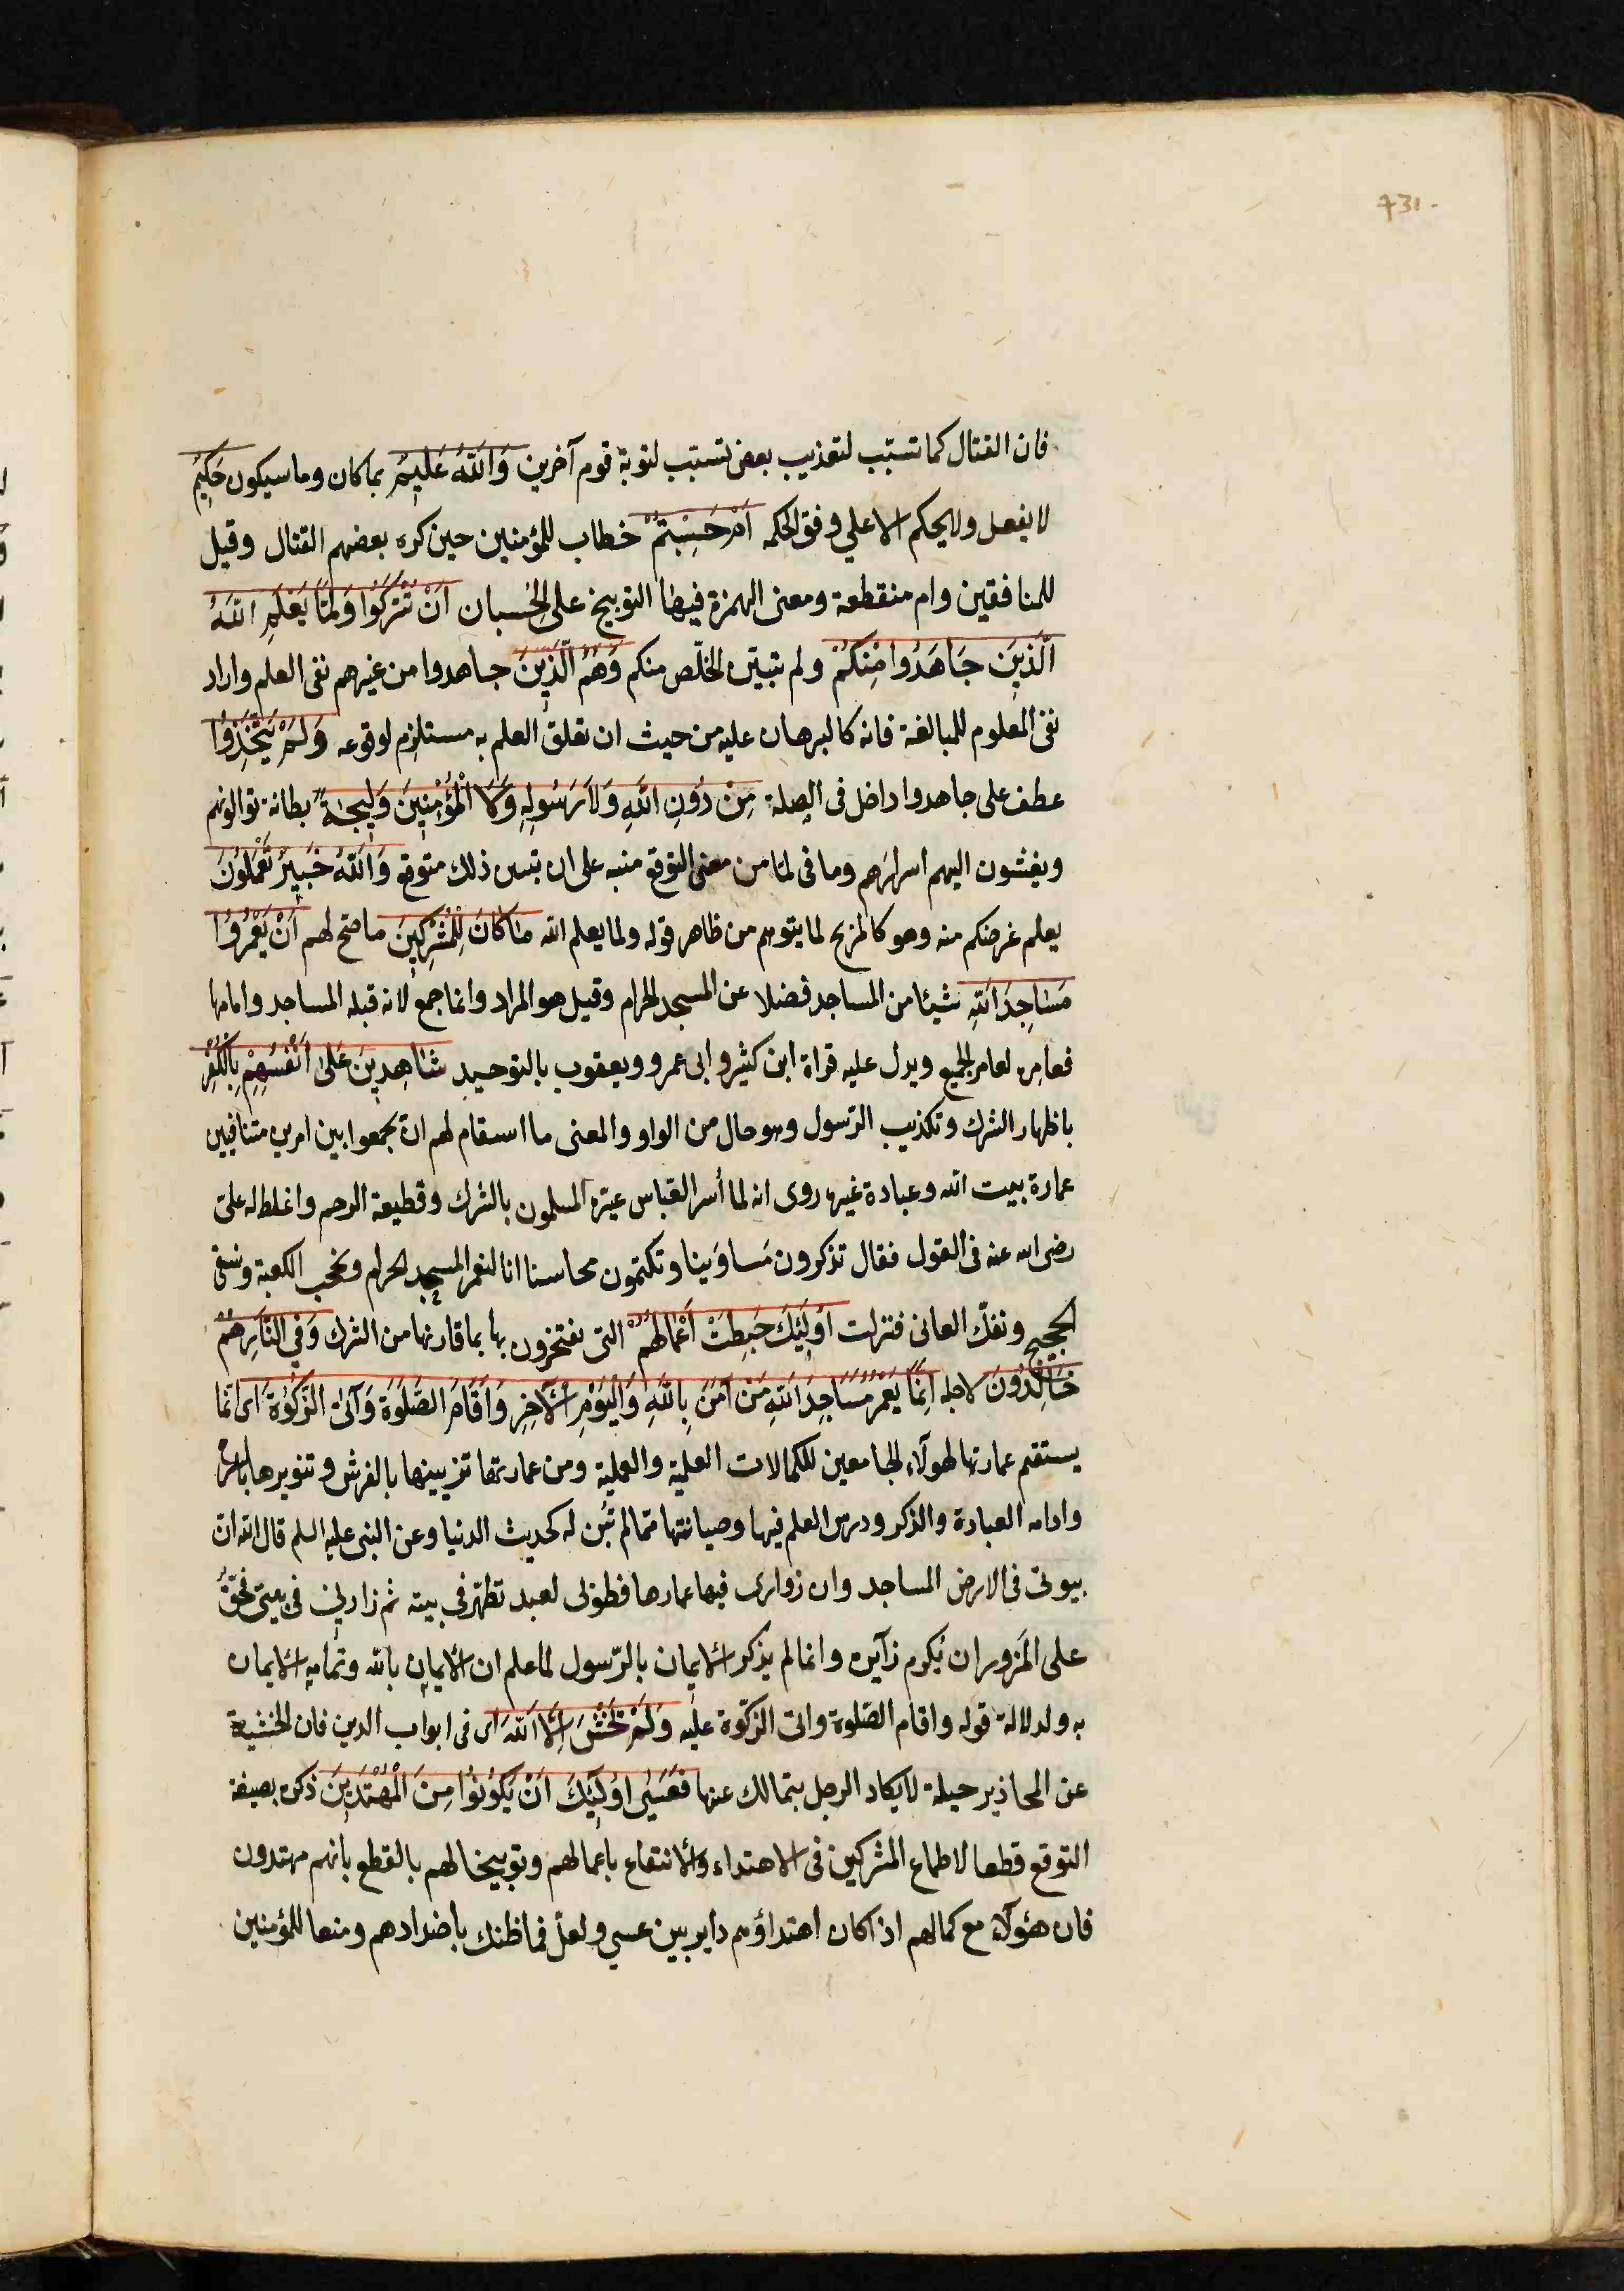 731.
فان القتال كما تسبّب لتعذيب بعض تسبّب لتوبة قوم آخرين وَاللّٰهُ عَلِيمٌ بما كان وما سيكون حَكِيمٌ
لا يفعل ولا يحكم الا علي وفق الحكمه اَمْ حَسِبْتُمْ خطاب للمؤمنين حين كره بعضهم القتال وقيل
للمنافقين وام منقطعة ومعنى الهمزة فيها التوبيخ على الحُسبان اَنْ تُتْرَكُوا وَلَمَّا يَعْلَمِ اللّٰهُ
الَّذِينَ جَاهَدُوا مِنْكُمْ ولم يتبيّن الخلّص منكم وَهُمُ الَّذِينَ جاهدوا من غيرهم نفى العلم واراد
نفى المعلوم للمبالغة فانه كالبرهان عليه من حيث ان تعلق العلم به مستلزم لوقوعه وَلَمْ يَتَّخِذُوا
عطف على جاهدوا داخل فى الصلة مِنْ دُونِ اللّٰهِ وَلَا رَسُولِهِ وَلَا الْمُؤْمِنِينَ وَلِيجَةً بطانة توالونهم
ويفشون اليهم اسرارهم وما فى لما من معنى التوقع منبه على ان تبين ذلك متوقع وَاللّٰهُ خَبِيرٌ تَعْمَلُونَ
يعلم غرضكم منه وهو كالمزيح لما يتوهم من ظاهر قوله ولما يعلم الله مَا كَانَ لِلْمُشْرِكِينَ ما صحّ لهم اَنْ يَعْمُرُوا
مَسَاجِدَ اللّٰهِ شيئا من المساجد فضلا عن المسجد الحرام وقيل هو المراد وانما جمع لانه قبله المساجد وامامها
فعامره كعامر الجميع ويدل عليه قراة ابن كثير وابى عمرو ويعقوب بالتوحيد شَاهِدِينَ عَلَى اَنْفُسِهِمْ بِالْكُفْرِ
باظهار الشرك وتكذيب الرّسول وهو حال من الواو والمعنى ما استقام لهم ان يجمعوا بين امرين متنافيين
عمارة بيت الله وعبادة غيره روى انه لما أسر العباس عيّره المسلمون بالشرك وقطيعة الرحم واغلظ له علىّ
رضى الله عنه فى القول فقال تذكرون مَساوَينا وتكتمون محاسننا انا لنعمر المسجد الحرام ونحجب الكعبة ونسقى
الحجيج ونفكّ العانى فنزلت اُولٰئِكَ حَبِطَتْ اَعْمَالُهُمْ التى يفتخرون بها بما قارنها من الشرك وَفِي النَّارِ هُمْ
خَالِدُونَ لاجله اِنَّمَا يَعْمُرُ مَسَاجِدَ اللّٰهِ مَنْ اٰمَنَ بِاللّٰهِ وَالْيَوْمِ الْاٰخِرِ وَاَقَامَ الصَّلٰوةَ وَاٰتَى الزَّكٰوةَ اى انما
يستقيم عمارتها لهولآء الجامعين للكمالات العلمية والعملية ومن عمارتها تزيينها بالفرش وتنويرها بالسرج
وادامه العبادة والذكر ودرس العلم فيها وصيانتها ممّا لم تُبن له كحديث الدنيا وعن النبى عليه السلم قال الله ان
بيوتى فى الارض المساجد وان زوارى فيها عمارها فطوبى لعبد تطهّر فى بيته ثم زارنى فى بيتى فحقٌّ
على المَزور ان يُكرم زآيره وانما لم يذكر الايمان بالرّسول لما علم ان الايمان بالله وتمامه الايمان
به ولدلالة قوله واقام الصّلوة واتى الزكوة عليه وَلَمْ يَخْشَ اِلَّا اللّٰهَ اى فى ابواب الدين فان الخشية
عن المحاذير جبلة لا يكاد الرجل يتمالك عنها فَعَسٰى اُولٰئِكَ اَنْ يَكُونُوا مِنَ الْمُهْتَدِينَ ذكره بصيغة
التوقع قطعا لاطماع المشركين فى الاهتداء والانتفاع باعمالهم وتوبيخا لهم بالقطع بأنهم مهتدون
فان هؤلآء مع كمالهم اذا كان اهتداؤهم داير بين عسى ولعلّ فما ظنك بأضدادهم ومنعا للمؤمنين